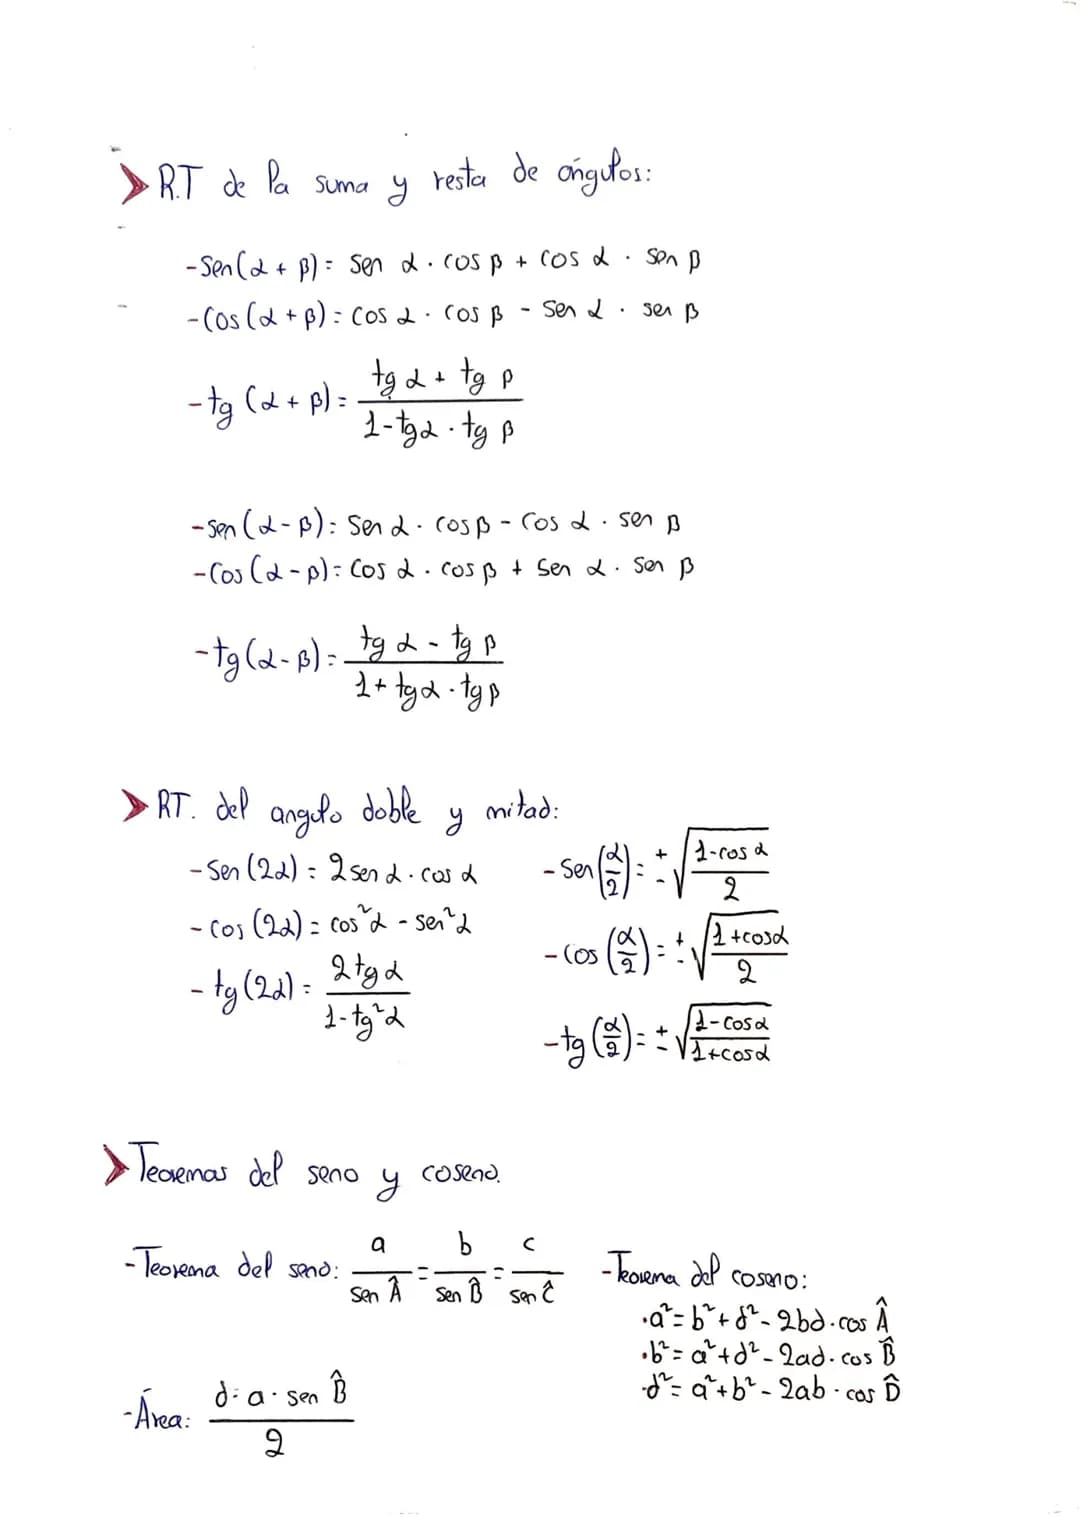 R.T de la suma y resta de ángulos:
-Sen(α + β) = sen α · cos β + cos α · sen β
-Cos(α + β) = cos α · cos β - Sen α · sen β
-tg (α + β) = (tg α + tg β) / (1 - tg α · tg β)
-sen (α - β) = Sen α · cos β - cos α · sen β
-Cos (α - β) = Cos α · cos β + sen α · sen β
-tg (α - β) = (tg α - tg β) / (1 + tg α · tg β)
RT. del angulo doble y mitad:
-Sen (2α) = 2 sen α · cos α
-cos (2α) = cos²α - sen²α
-tg (2α) = 2 tg α / (1 - tg²α)
-Sen (α/2) = ± √((1 - cos α) / 2)
-Cos (α/2) = ± √((1 + cos α) / 2)
-tg (α/2) = ± √((1 - cos α) / (1 + cos α))
Teoremas del seno y coseno.
-Teorema del seno: a / sen Â = b / sen B̂ = c / sen Ĉ
-Teorema del coseno:
·a² = b² + d² - 2bd · cos Â
·b² = a² + d² - 2ad · cos B̂
·d² = a² + b² - 2ab · cos D̂
-Área: d · a · sen B̂ / 2